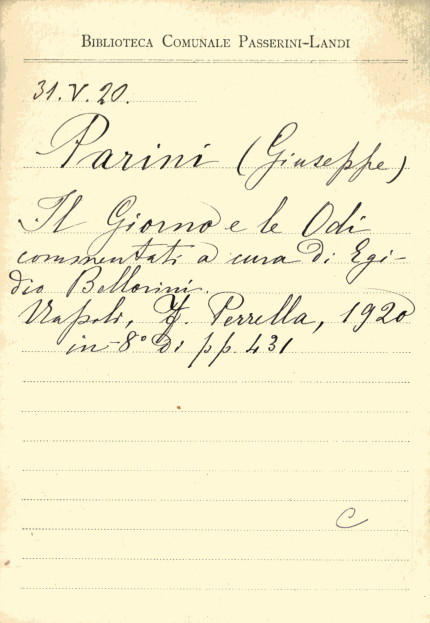 BIBLIOTECA COMUNALE PASSERINI-LANDI
31.V.20.
Parini (Giuseppe)
Il Giorno e le Odi
commentati a cura di Egi-
dio Bellorini.
Napoli, F. Perrella, 1920
in-8° di pp. 431
C